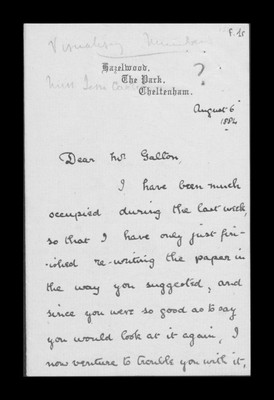 Visualising Number
Hazelwood,
The Park,
Cheltenham.
?
August 6
1884
Dear Mr. Galton,
I have been much
occupied during the last week,
so that I have only just fin-
-ished re-writing the paper in
the way you suggested, and
since you were so good as to say
you would look at it again, I
now venture to trouble you with it,